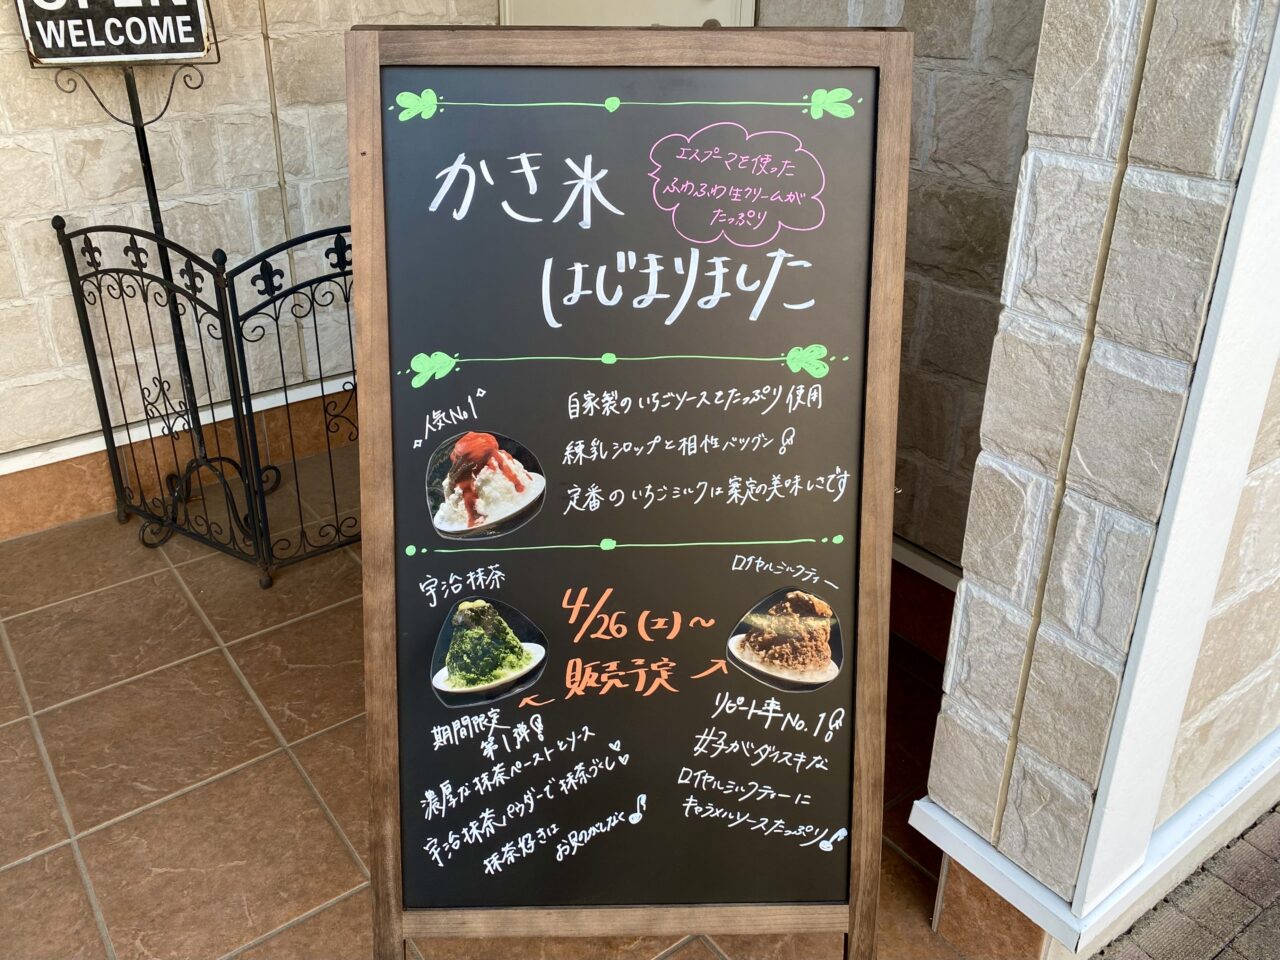 OPEN
WELCOME
かき氷
エスプーマを使った
ふわふわ生クリームが
たっぷり
はじまりました
人気No.1
自家製のいちごソースをたっぷり使用
練乳シロップと相性バツグン!
定番のいちごミルクは案定の美味しさです
宇治抹茶
ロイヤルミルクティー
4/26(土)～
販売予定
期間限定
第1弾!
濃厚な抹茶ペーストとソース
宇治抹茶パウダーで抹茶づくし♥
抹茶好きは
お見のがしなく♪
リピート率No.1!
女子がダイスキな
ロイヤルミルクティーに
キャラメルソースたっぷり♪